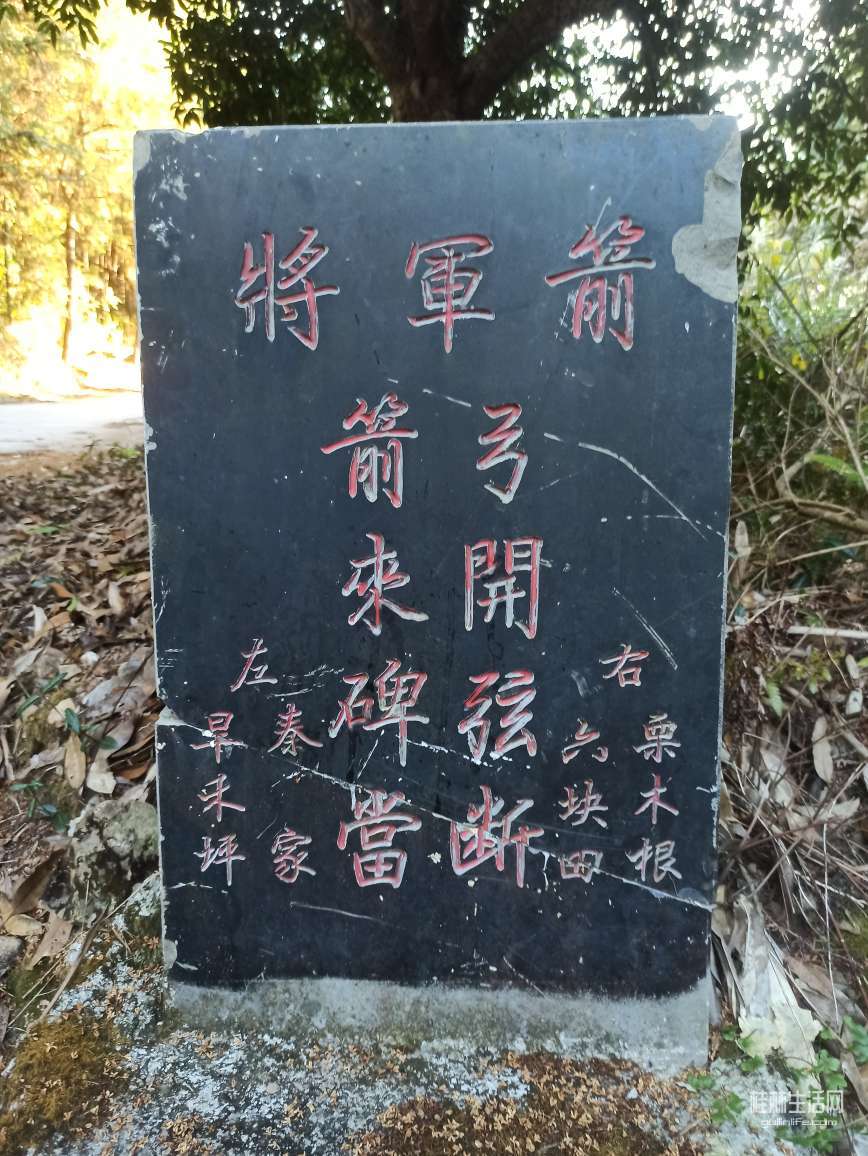 將軍箭
弓開弦断
箭來碑當
右
栗木根
六块田
左
秦家
早禾坪
桂林生活网
guilinlife.com